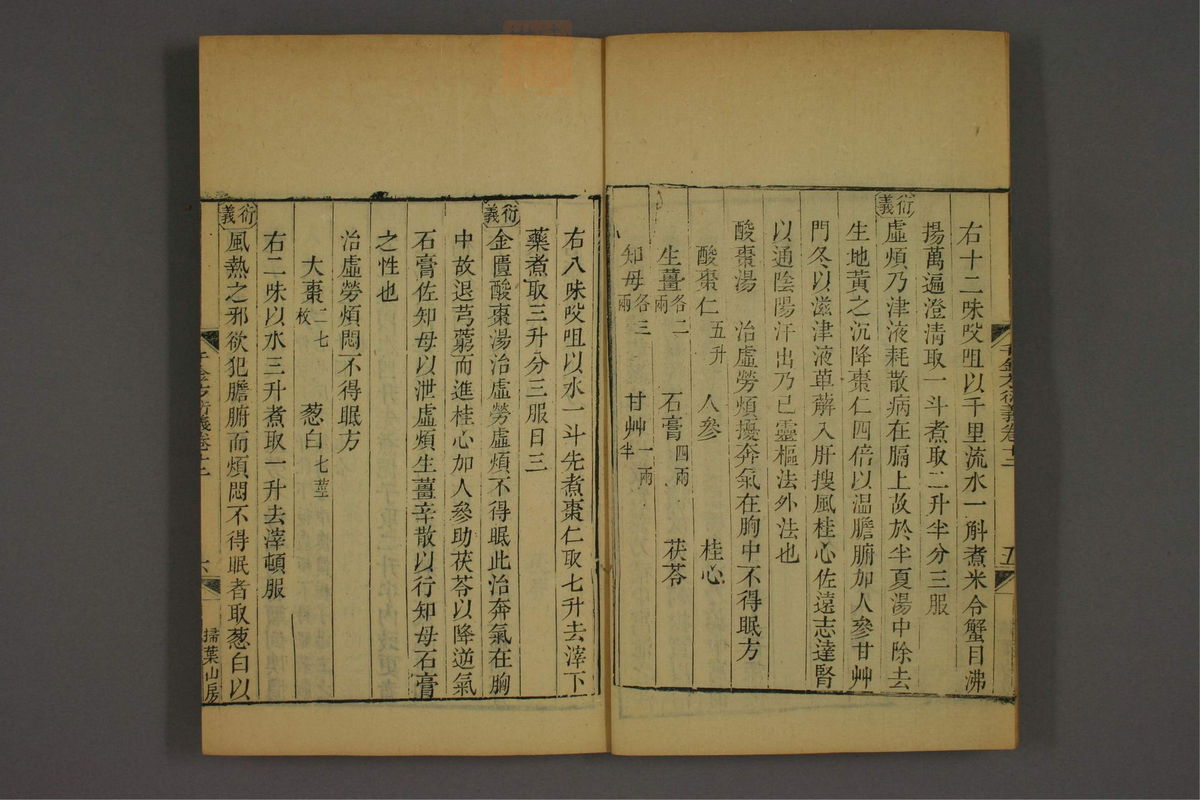 右十二味㕮咀以千里流水一斛煮米令蟹目沸
揚萬遍澄清取一斗煮取二升半分三服
衍義
虛煩乃津液耗散病在膈上故於半夏湯中除去
生地黃之沉降棗仁四倍以温膽腑加人參甘艸
門冬以滋津液萆薢入肝搜風桂心佐遠志達腎
以通陰陽汗出乃已靈樞法外法也
酸棗湯　治虛勞煩擾奔氣在胸中不得眠方
酸棗仁五升　人參　桂心
生薑各二兩　石膏四兩　茯苓
知母各三兩　甘艸一兩半
右八味㕮咀以水一斗先煮棗仁取七升去滓下
藥煮取三升分三服日三
衍義
金匱酸棗湯治虛勞虛煩不得眠此治奔氣在胸
中故退芎藭而進桂心加人參助茯苓以降逆氣
石膏佐知母以泄虛煩生薑辛散以行知母石膏
之性也
治虛勞煩悶不得眠方
大棗二七枚　葱白七莖
右二味以水三升煮取一升去滓頓服
衍義
風熱之邪欲犯膽腑而煩悶不得眠者取葱白以
千金方衍義卷十二
五
千金方衍義卷十二
六
掃葉山房